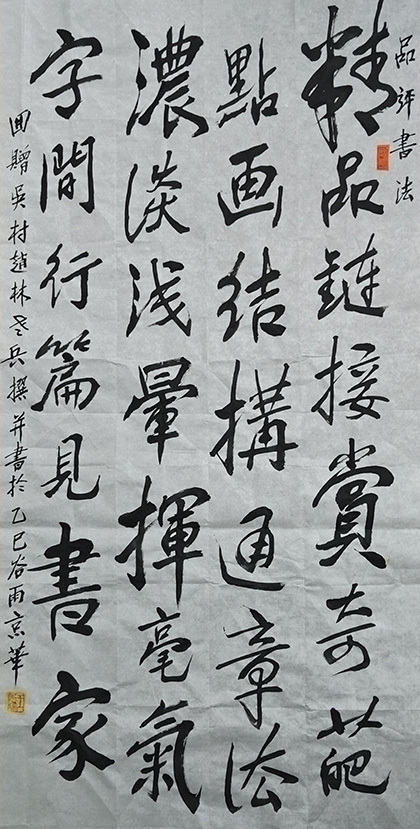 品評書法
精品鏈接賞奇葩
點画结搆通章法
濃淡浅暈揮毫氣
字間行篇見書家
回贈吳村趙林老兵撰并書於乙巳谷雨京華